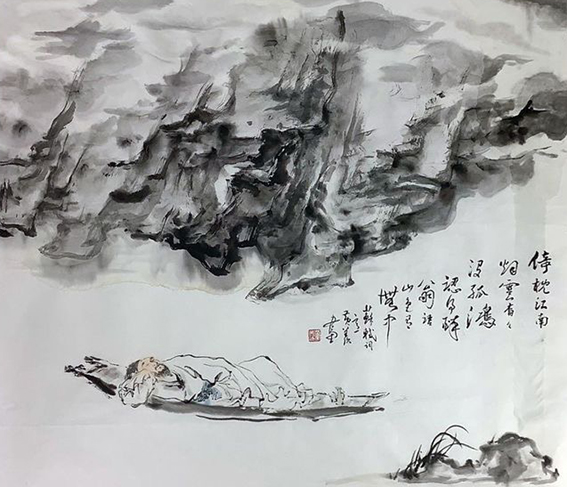 倚枕江南
烟雲杳々
没孤鴻
認得醉
翁語
山色有
無中
蘇軾詞
意